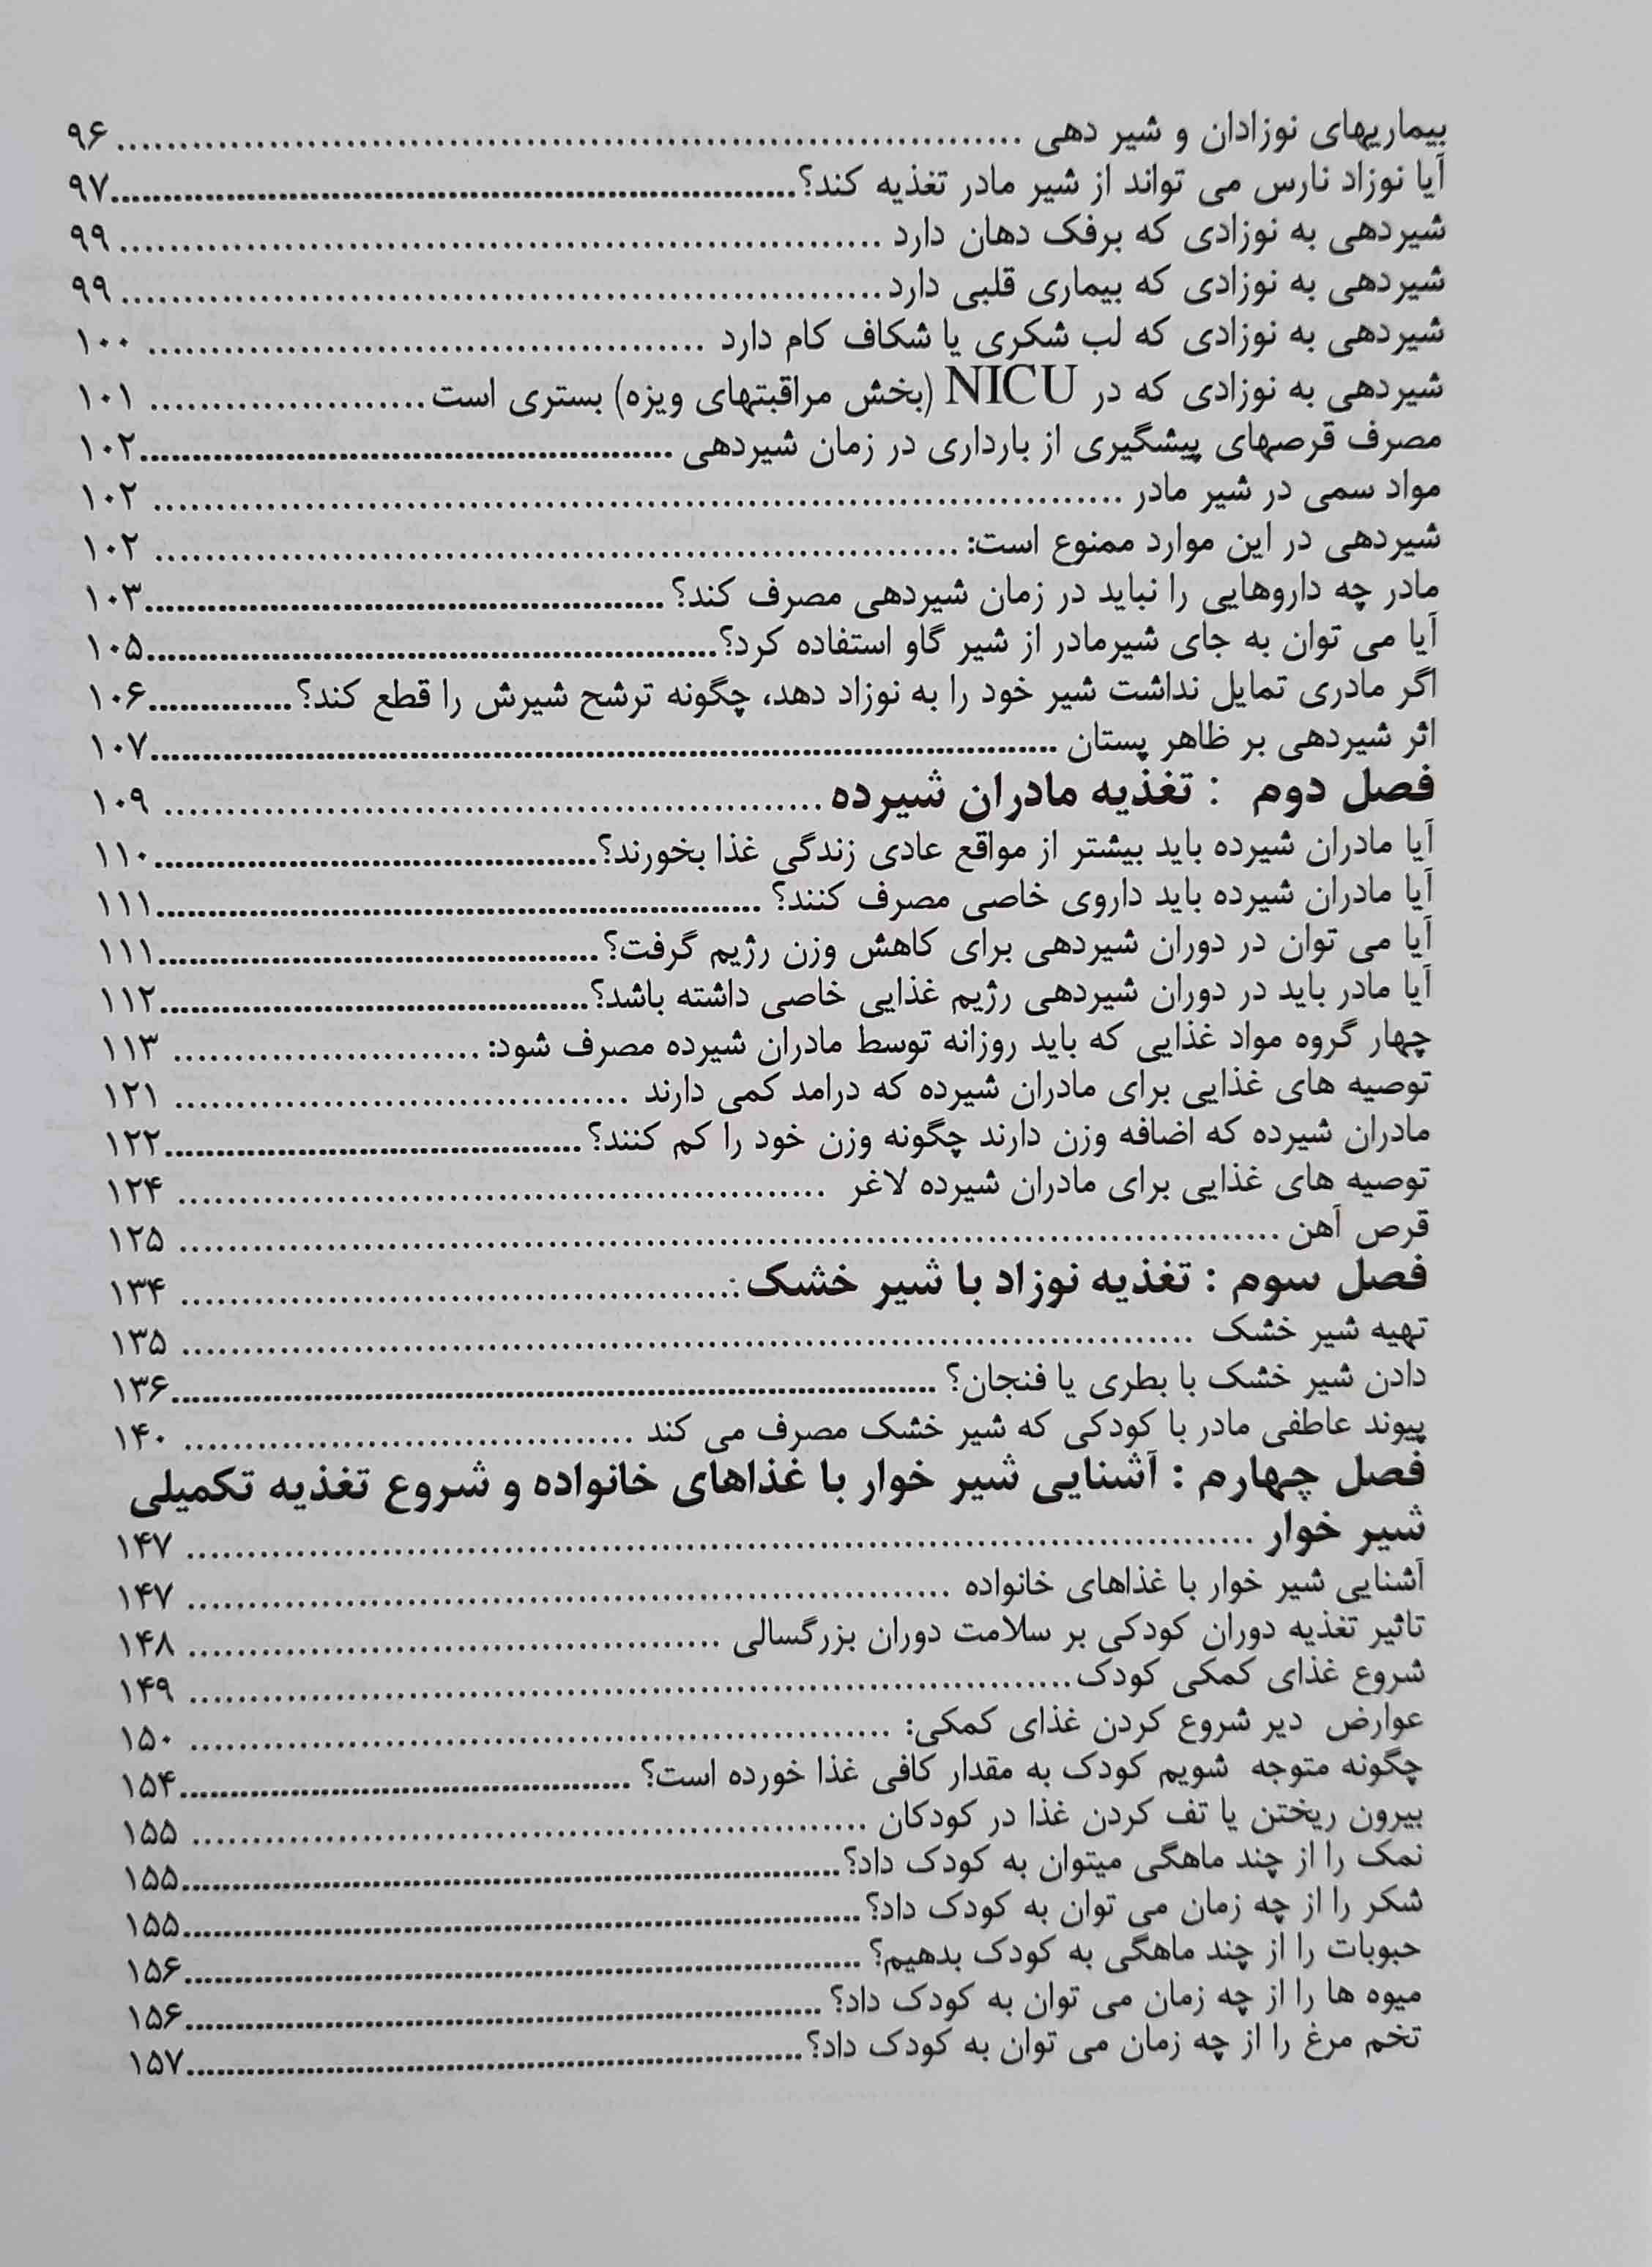 بیماریهای نوزادان و شیر دهی ........................................ ۹۶
آیا نوزاد نارس می تواند از شیر مادر تغذیه کند؟........................................۹۷
شیردهی به نوزادی که برفک دهان دارد ........................................ ۹۹
شیردهی به نوزادی که بیماری قلبی دارد........................................ ۹۹
شیردهی به نوزادی که لب شکری یا شکاف کام دارد ........................................ ۱۰۰
شیردهی به نوزادی که در NICU (بخش مراقبتهای ویزه) بستری است...................... ۱۰۱
مصرف قرصهای پیشگیری از بارداری در زمان شیردهی ........................................۱۰۲
مواد سمی در شیر مادر ........................................ ۱۰۲
شیردهی در این موارد ممنوع است: ........................................ ۱۰۲
مادر چه داروهایی را نباید در زمان شیردهی مصرف کند؟ ........................................۱۰۳
آیا می توان به جای شیرمادر از شیر گاو استفاده کرد؟........................................۱۰۵
اگر مادری تمایل نداشت شیر خود را به نوزاد دهد، چگونه ترشح شیرش را قطع کند؟ ..............۱۰۶
اثر شیردهی بر ظاهر پستان ........................................۱۰۷
فصل دوم : تغذیه مادران شیرده........................................ ۱۰۹
آیا مادران شیرده باید بیشتر از مواقع عادی زندگی غذا بخورند؟........................................۱۱۰
آیا مادران شیرده باید داروی خاصی مصرف کنند؟ ........................................۱۱۱
آیا می توان در دوران شیردهی برای کاهش وزن رژیم گرفت؟........................................۱۱۱
آیا مادر باید در دوران شیردهی رژیم غذایی خاصی داشته باشد؟........................................۱۱۲
چهار گروه مواد غذایی که باید روزانه توسط مادران شیرده مصرف شود: ......................... ۱۱۳
توصیه های غذایی برای مادران شیرده که درامد کمی دارند ........................................ ۱۲۱
مادران شیرده که اضافه وزن دارند چگونه وزن خود را کم کنند؟ ........................................۱۲۲
توصیه های غذایی برای مادران شیرده لاغر ........................................ ۱۲۴
قرص آهن ........................................ ۱۲۵
فصل سوم : تغذیه نوزاد با شیر خشک:........................................ ۱۳۴
تهیه شیر خشک ........................................ ۱۳۵
دادن شیر خشک با بطری یا فنجان؟ ........................................۱۳۶
پیوند عاطفی مادر با کودکی که شیر خشک مصرف می کند ........................................ ۱۴۰
فصل چهارم : آشنایی شیر خوار با غذاهای خانواده و شروع تغذیه تکمیلی
شیر خوار ........................................ ۱۴۷
آشنایی شیر خوار با غذاهای خانواده ........................................ ۱۴۷
تاثیر تغذیه دوران کودکی بر سلامت دوران بزرگسالی ........................................ ۱۴۸
شروع غذای کمکی کودک........................................ ۱۴۹
عوارض دیر شروع کردن غذای کمکی: ........................................ ۱۵۰
چگونه متوجه شویم کودک به مقدار کافی غذا خورده است؟ ........................................۱۵۴
بیرون ریختن یا تف کردن غذا در کودکان ........................................ ۱۵۵
نمک را از چند ماهگی میتوان به کودک داد؟........................................۱۵۵
شکر را از چه زمان می توان به کودک داد؟........................................۱۵۵
حبوبات را از چند ماهگی به کودک بدهیم؟ ........................................۱۵۶
میوه ها را از چه زمان می توان به کودک داد؟ ........................................۱۵۶
تخم مرغ را از چه زمان می توان به کودک داد؟........................................۱۵۷